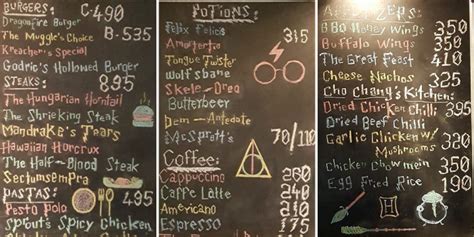 BURGERS: C-490
Dragonfire Burger
The Muggle's Choice B-535
Kreacher's Special
Godric's Hollowed Burger
STEAKS: 895
The Hungarian Horntail
The Shrieking Steak
Mandrake's Tears
Hawaiian Horcrux
The Half-Blood Steak
Sectumsempra
PASTAS: 495
Pesto Polo
Sprout's Spicy Chicken
POTIONS:
Felix Felicis
Amortentia
Tongue Twister
Wolfsbane
Skele-Gro
Butterbeer
Dem-Antedate
McSpratt's 70/110
Coffee:
Cappuccino 240
Caffe Latte 240
Americano 210
Espresso 160
BBQ Honey Wings 350
Buffalo Wings 350
The Great Feast 410
Cheese Nachos 325
Cho Chang's Kitchen:
Dried Chicken Chilli 395
Dried Beef Chilli
Garlic Chicken w/
Mushrooms
Chicken Chowmein
Egg Fried Rice